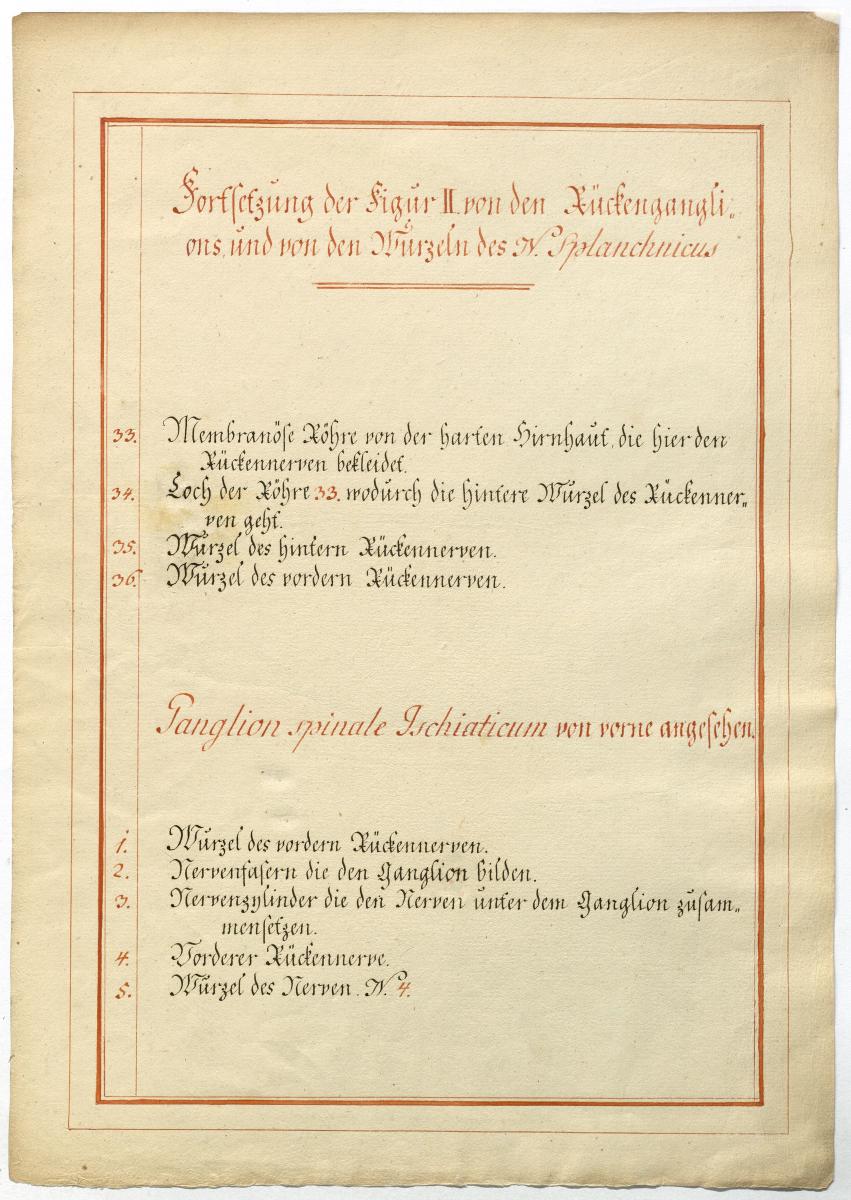 Fortsetzung der Figur II. von den Rückengangli„
ons, und von den Wurzeln des N. Splanchnicus
33. Membranöse Röhre von der harten Hirnhaut, die hier den
Rückennerven bekleidet.
34. Loch der Röhre 33. wodurch die hintere Wurzel des Rückenner„
ven geht.
35. Wurzel des hintern Rückennerven.
36. Wurzel des vordern Rückennerven.
Ganglion spinale Ischiaticum von vorne angesehen.
1. Wurzel des vordern Rückennerven.
2. Nervenfasern die den Ganglion bilden.
3. Nervenzylinder die den Nerven unter dem Ganglion zusam„
mensetzen.
4. Vorderer Rückennerve.
5. Wurzel des Nerven. N. 4.